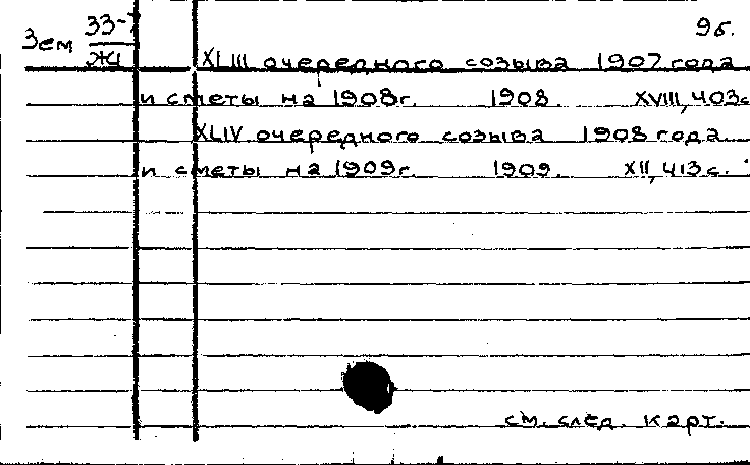 Зем 33-7 9б.
Ж1 XLIII очередного созыва 1907 года
и сметы на 1908г. 1908. XVIII, 403с
XLIV очередного созыва 1908 года
и сметы на 1909г. 1909. XII, 413с.
см. след. карт.